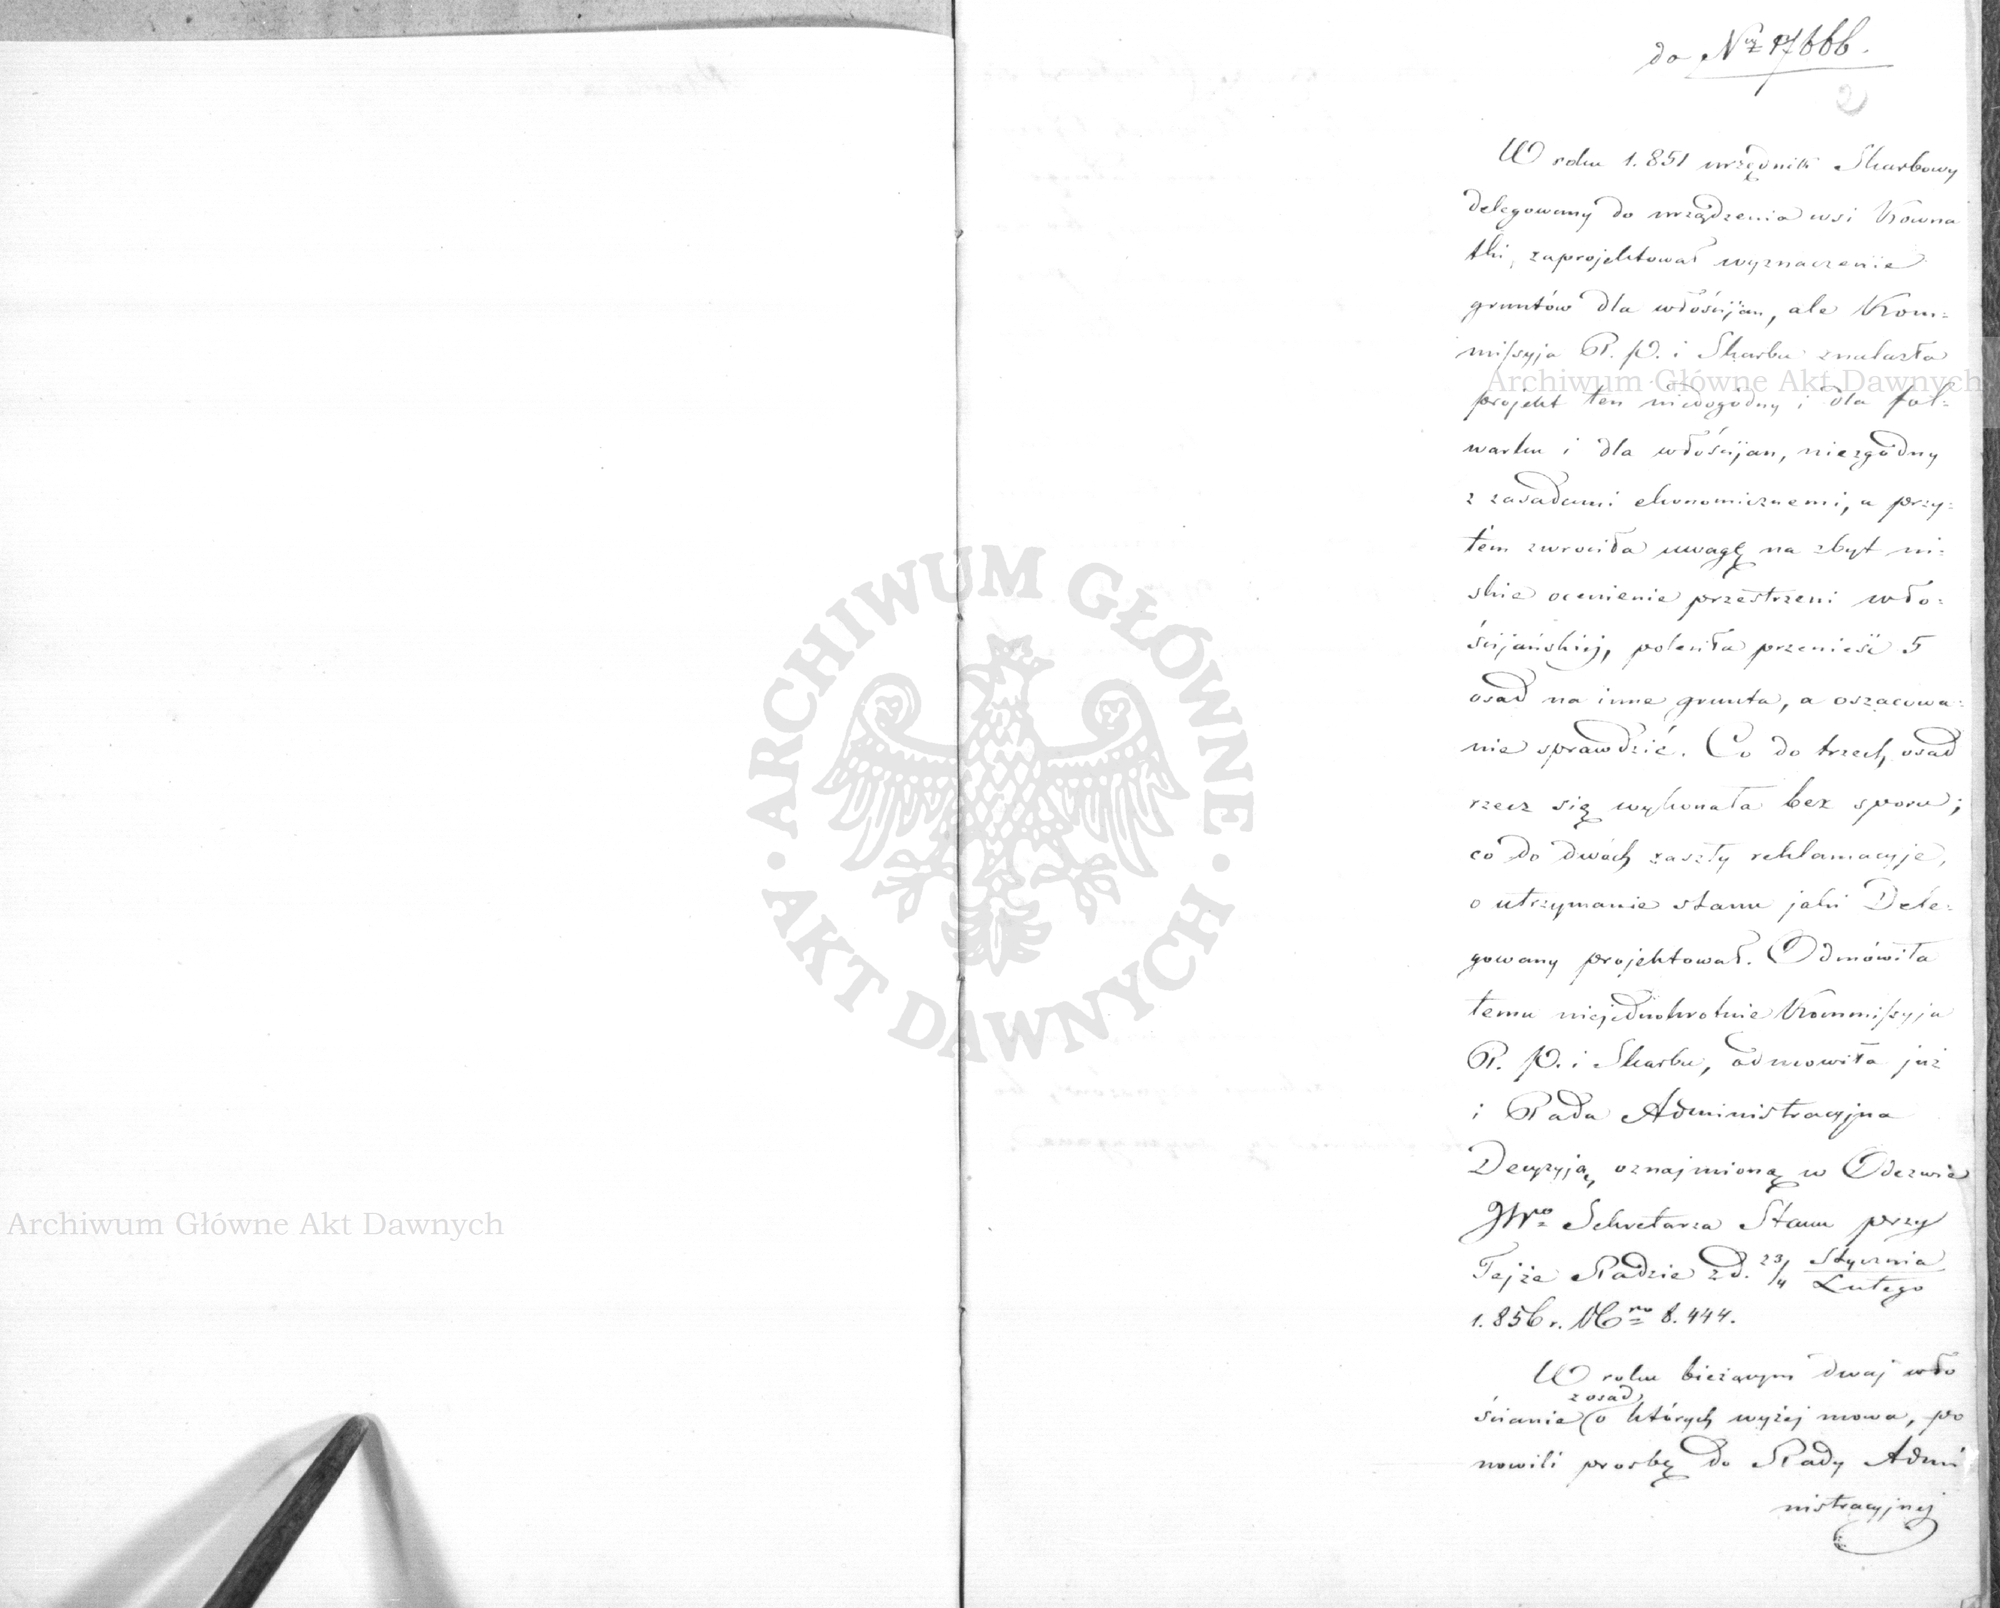 do Nru 17666.
2
W roku 1.851 urzędnik Skarbowy
delegowany do urządzenia wsi Kowna
tki, zaprojektował wyznaczenie
gruntów dla włościjan, ale Kom=
missyja P. P. i Skarbu znalazła
projekt ten niedogodny i dla fol=
warku i dla włościjan, niezgodny
z zasadami ekonomicznemi, a przy=
tem zwrociła uwagę na zbyt ni=
skie ocenienie przestrzeni wło=
ścijańskiej, poleciła przenieść 5
osad na inne grunta, a oszacowa=
nie sprawdzić. Co do trzech osad
rzecz się wykonała bez sporu;
co do dwóch zaszły reklamacyje,
o utrzymanie stanu jaki Dele=
gowany projektował. Odmówiła
temu niejednokrotnie Kommissyja
P. P. i Skarbu, odmowiła już
i Rada Administracyjna
Decyzyją, oznajmioną w Odezwie
JWo Sekretarza Stanu przy
Tejże Radzie z d. 23/4 Stycznia/Lutego
1.856 r. Nro 8.444.
W roku bieżącym dwaj wło
ścianie z osad o których wyżej mowa, po
nowili prosbę do Rady Admi
nistracyjnej
Archiwum Główne Akt Dawnych
Archiwum Główne Akt Dawnych
ARCHIWUM GŁÓWNE
AKT DAWNYCH